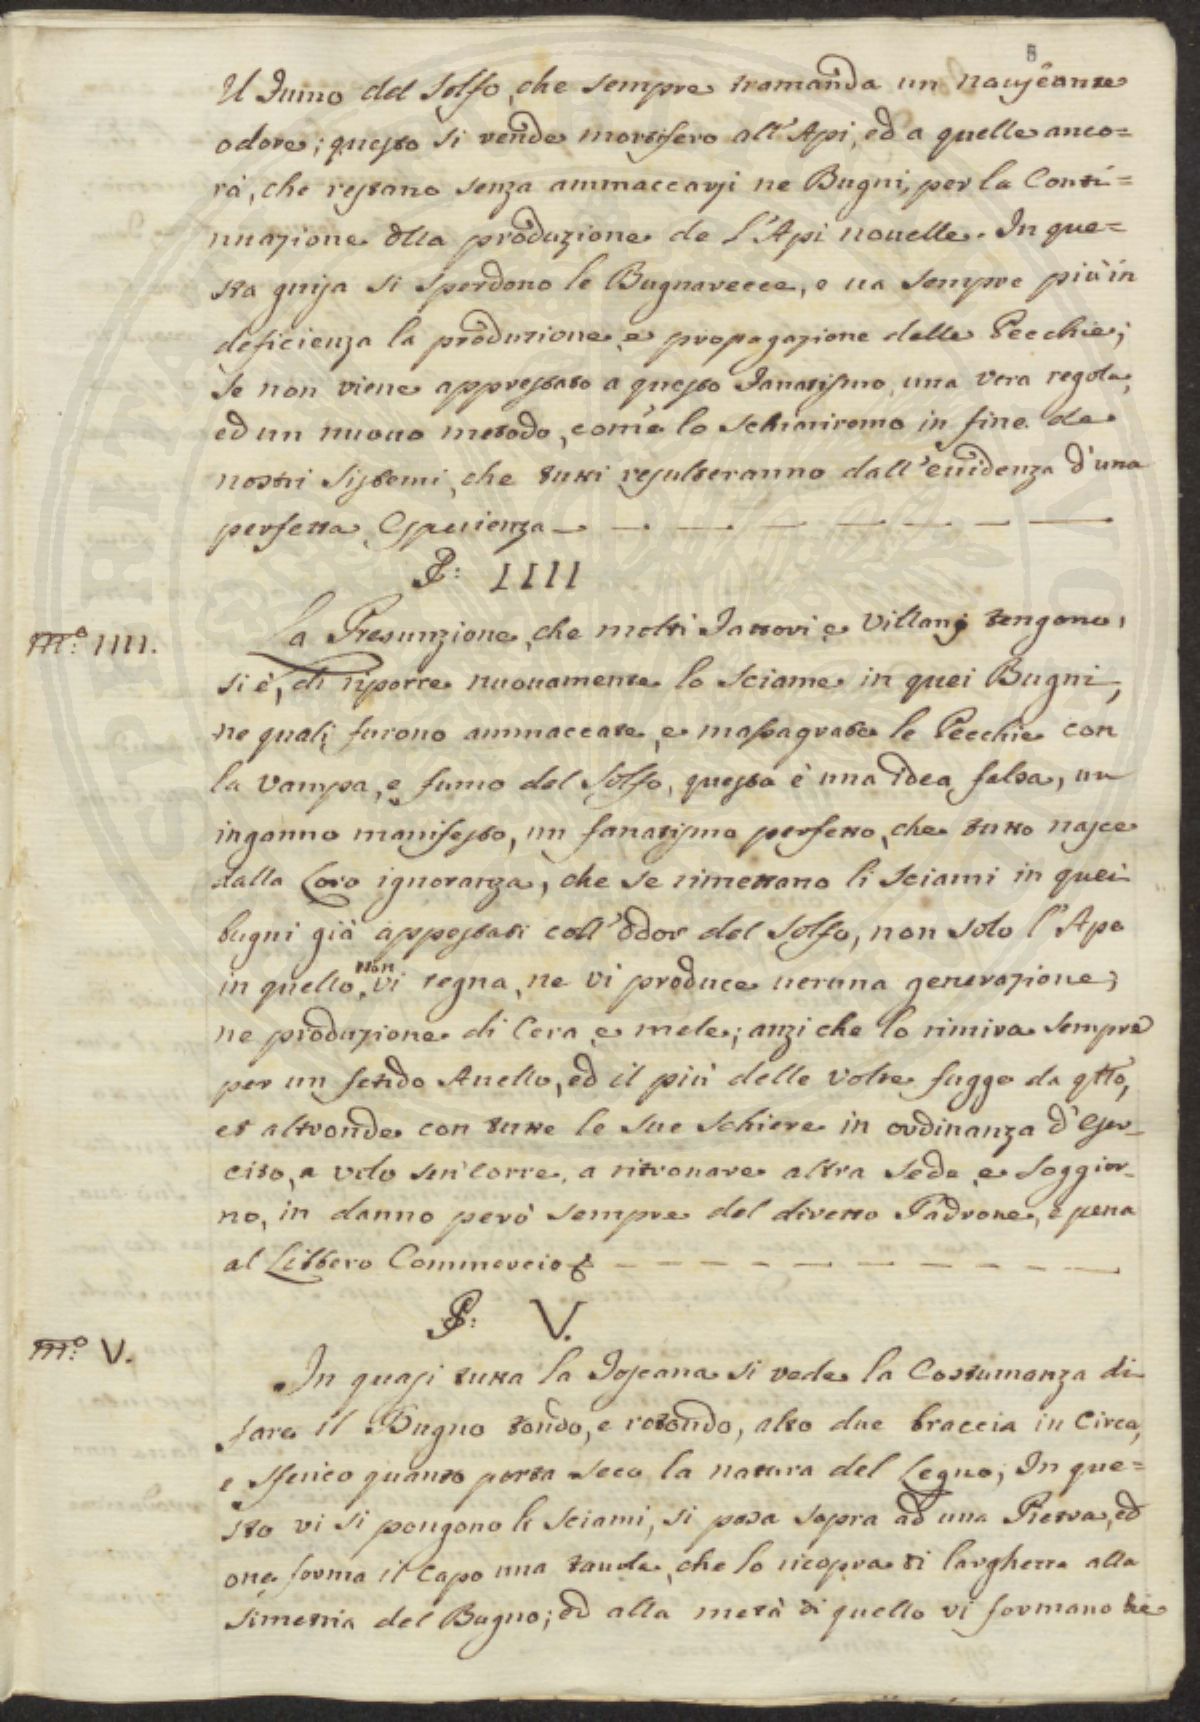 8
Il Fumo del Solfo, che sempre tramanda un nauseante
odore; questo si rende mortifero all'Api, ed a quelle anco=
rà, che restano senza ammaccarsi ne Bugni, per la Conti=
nuazione dlla produzione de l'Api nouelle. In que=
sta guisa si sperdono le Bugnarecce, e ua sempre più in
deficienza la produzione e propagazione delle Pecchie;
Se non viene apprestato a questo Fanatismo, una vera regola,
ed un nuouo metodo, come lo schiariremo in fine de
nostri Sistemi, che tutti resulteranno dall'euidenza d'una
perfetta Esperienza
§: IIII
m.º IIII.
La Presunzione, che molti Fattori e Villanj tengono,
si è, di riporre nuouamente lo Sciame in quei Bugni,
ne quali furono ammaccate, e massagrate le Pecchie con
la Vampa, e fumo del Solfo, questa è una idea falsa, un
inganno manifesto, un fanatismo perfetto, che tutto nasce
dalla Loro ignoranza, che se rimettano li Sciami in quei
bugni già appestati coll'odor del Solfo, non solo l'Ape
in quello non vi regna, ne vi produce ueruna generazione,
ne produzione di Cera, e mele; anzi che lo rimira sempre
per un fetido Auello, ed il più delle volte fugge da qtto,
et altronde con tutte le sue schiere in ordinanza d'Eser-
cito, a volo sen'corre, a ritrouare altra sede e Soggior-
no, in danno però sempre del diretto Padrone, e pena
al Libbero Commercio
§: V.
m.º V.
In quasi tutta la Toscana si vede la Costumanza di
fare il Bugno tondo, e rotondo, alto due braccia in Circa,
e sferico quanto porta seco la natura del Legno; In que=
sto vi si pongono li Sciami, si posa sopra ad una Pietra, ed
one forma il Capo una tauola, che lo ricopra di larghezza alla
Simetria del Bugno; ed alla metà di quello vi formano tre